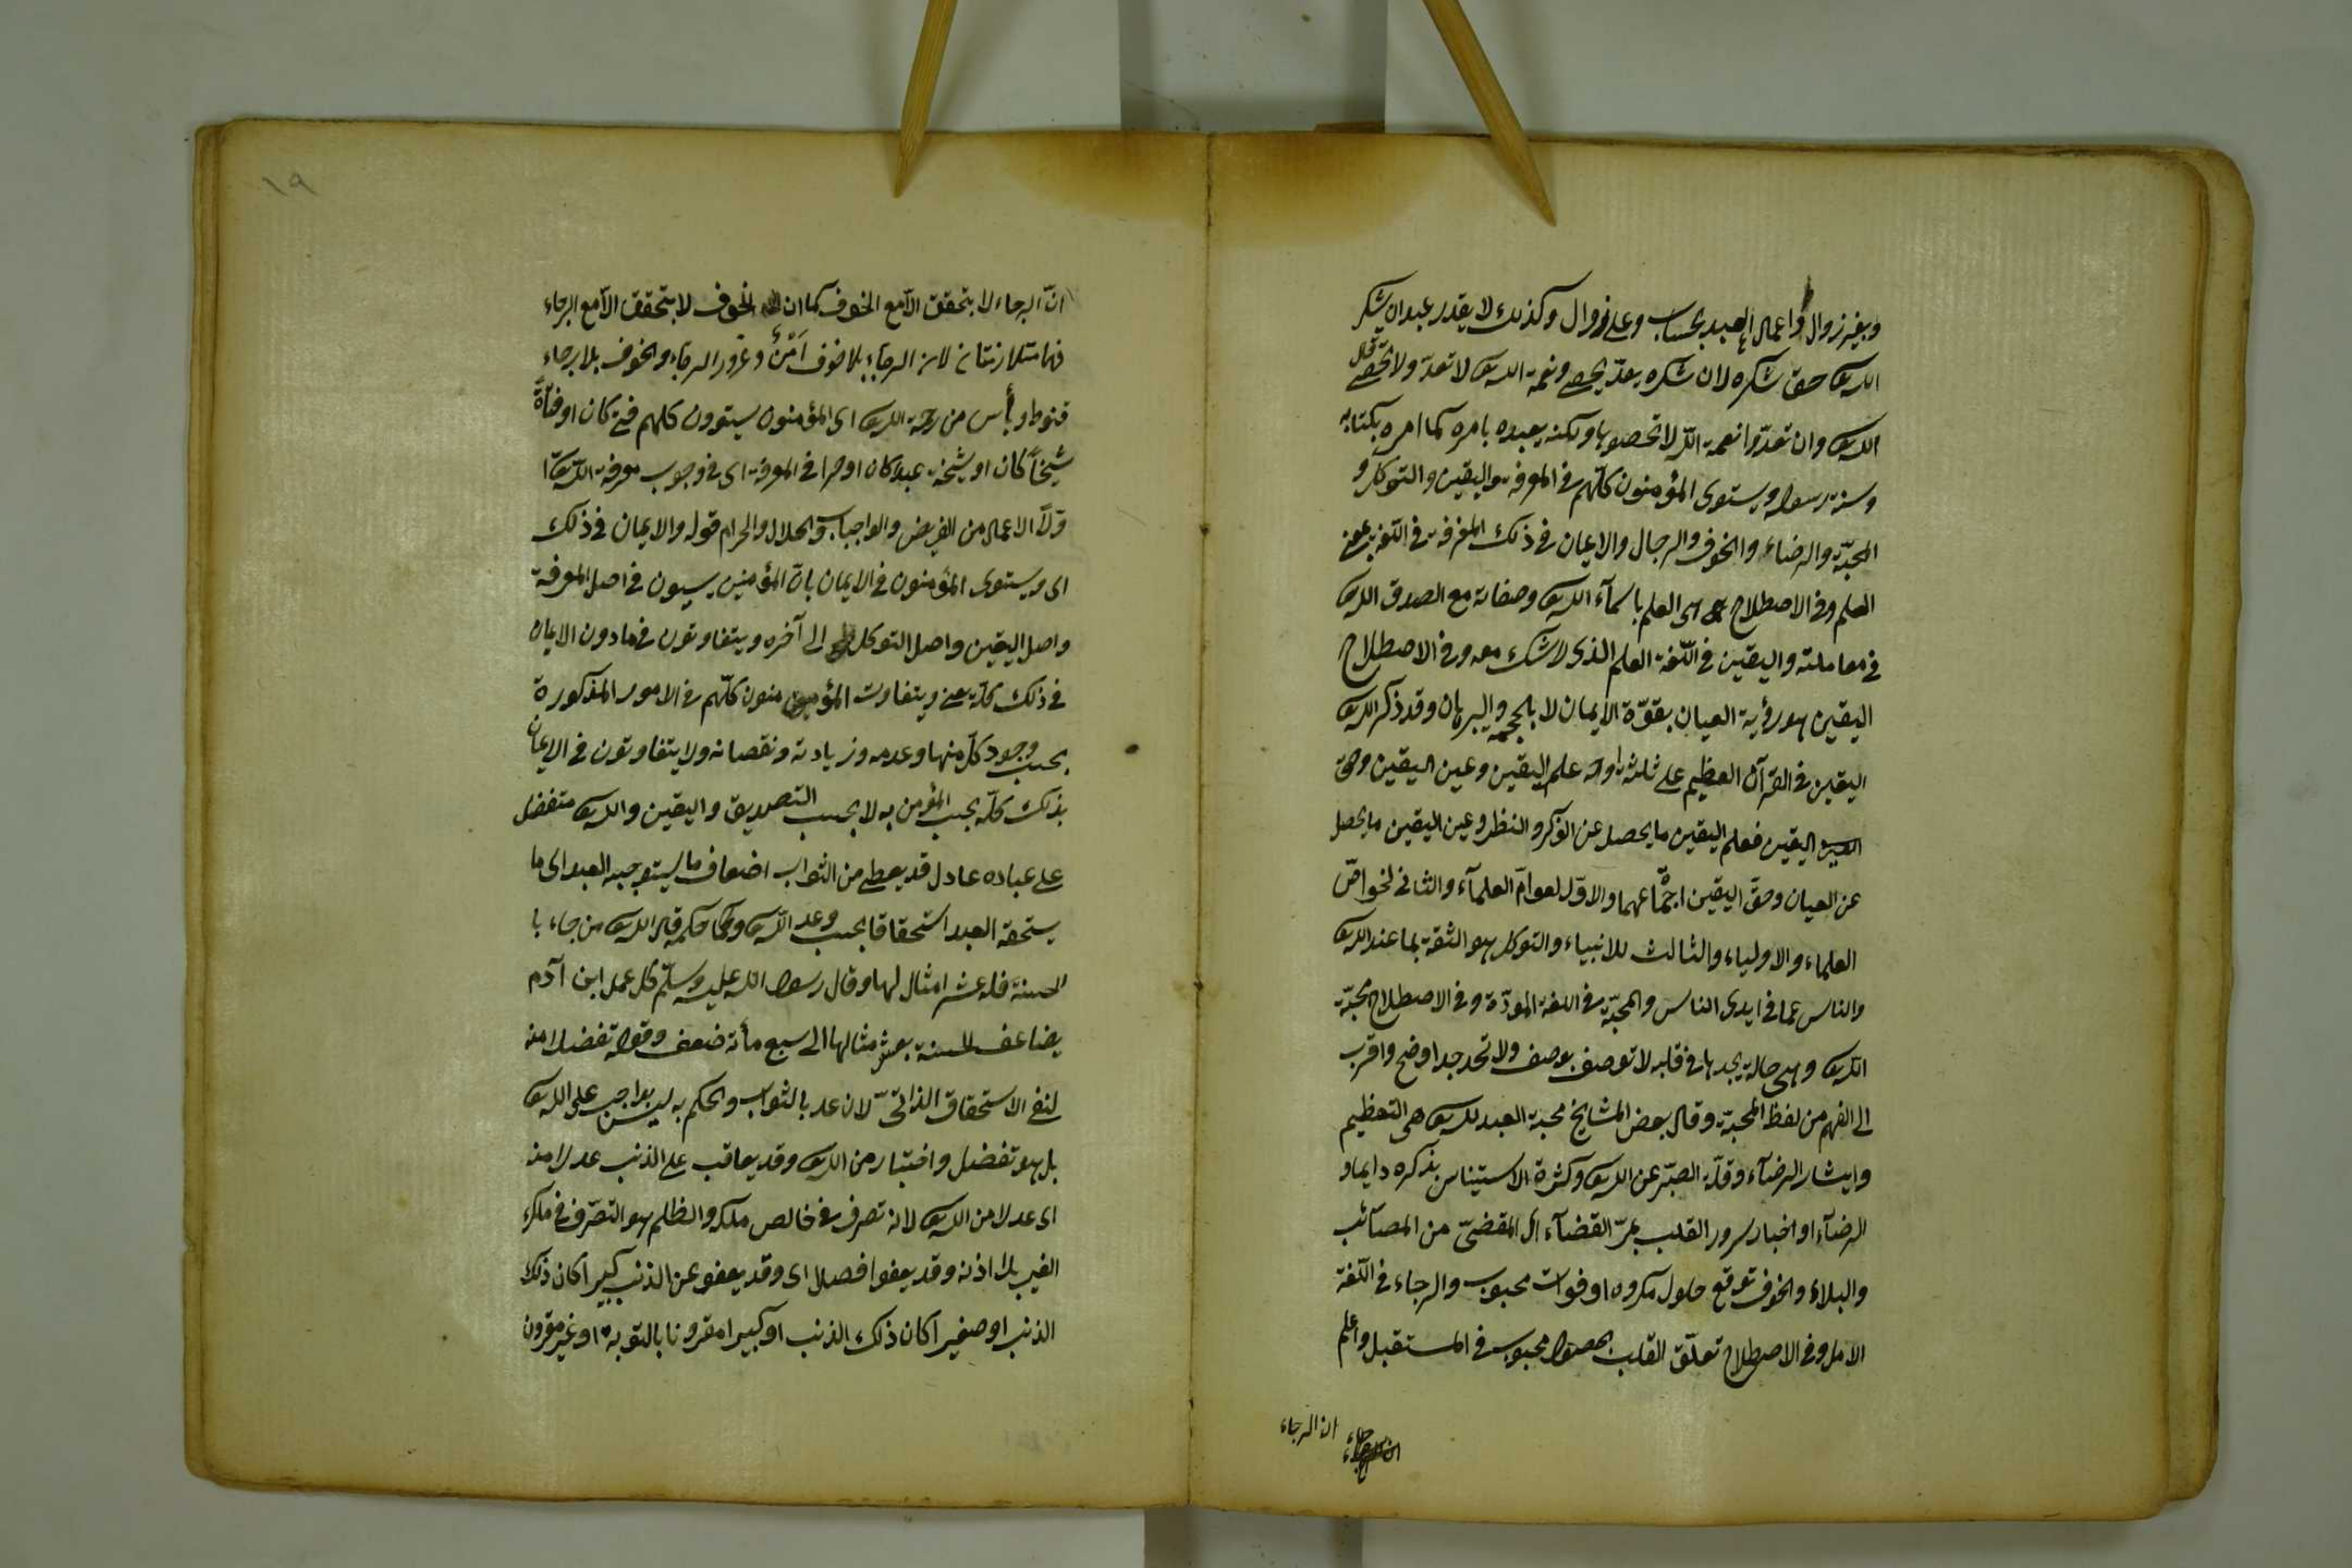 وبغير زوال واعمال العبد بحساب وعلى زوال وكذلك لا يقدر عبد ان يشكر
الله تعالى حق شكره لان شكره يعدّ يحصى ونعمة الله تعالى لا تعدّ ولا تحصى قال
الله تعالى وان تعدّوا نعمة الله لا تحصوها ولكنه يعبده بامره كما امره بكتابه
وسنة رسوله ويستوى المؤمنون كلّهم فى المعرفة واليقين والتوكل و
المحبّة والرضاء والخوف والرجال والايمان فى ذلك المعرفة فى اللّغة بمعنى
العلم وفى الاصطلاح هى العلم باسمآء الله تعالى وصفاته مع الصدق الله تعالى
فى معاملته واليقين فى اللّغة العلم الذى لا شك معه وفى الاصطلاح
اليقين هو رؤية العيان بقوّة الايمان لا بالحجة والبرهان وقد ذكر الله تعالى
اليقين فى القرآن العظيم على ثلثة اوجه علم اليقين وعين اليقين وحق
اليقين فعلم اليقين ما يحصل عن الفكر والنظر وعين اليقين ما يحصل
عن العيان وحقّ اليقين اجتماعهما والاوّل لعوامّ العلمآء والثانى لخواصّ
العلماء والاولياء والثالث للانبياء والتوكل هو الثقة بما عند الله تعالى
والناس عما فى ايدى الناس والمحبّة فى اللغة المودّة وفى الاصطلاح محبّة
الله تعالى وهى حالة يجدها فى قلبه لا توصف بوصف ولا تحد بحد اوضح واقرب
الى الفهم من لفظ المحبّة وقال بعض المشايخ محبة العبد لله تعالى هى التعظيم
وايثار الرضآء وقلّة الصبّر عن الله تعالى وكثرة الاستيناس بذكره دايما و
الرضآء اواخبار سرور القلب بمرّ القضآء اى المقضىّ من المصآئب
والبلاء والخوف توقع حلول مكروه او فوات محبوب والرجاء فى اللّغة
الامل وفى الاصطلاح تعلّق القلب بحصول محبوب فى المستقبل واعلم
انّ الرجاء
١٩
انّ الرجاء لا يتحقق الاّ مع الخوف كما ان الخوف لا يتحقق الاّ مع الرجاء
فهما متلازمتان لان الرجاء بلا خوف امن وغرور الرجاء والخوف بلا رجاء
قنوط ويأس من رحمة الله تعالى اى المؤمنون يستوون كلهم فتى كان او فتاةً
شيخاً كان او شيخة عبدا كان او حرا فى المعرفة اى فى وجوب معرفة الله تعالى ا
وّلاً الاعمال من الفريض والواجبات والحلال والحرام قوله والايمان فى ذلك
اى ويستوى المؤمنون فى الايمان بانّ المؤمنين يسيون فى اصل المعرفة
واصل اليقين واصل التوكل الى آخره ويتفاوتون فيما دون الايمان
فى ذلك كلّه يعنى ويتفاوت المؤمنون كلّهم فى الامور المذكورة
بحسب وجود كلّ منها وعدمه وزيادته ونقصانه ولا يتفاوتون فى الايمان
بذلك كلّه بحسب المؤمن به لا بحسب التصديق واليقين والله تعالى متفضل
على عباده عادل قد يعطى من الثواب اضعاف ما يستوجبه العبد اى ما
يستحقه العبد استحقاقا بحسب وعد الله تعالى وحكمه قال الله تعالى من جاء با
لحسنة فله عشر امثالها وقال رسول الله عليه وسلّم كل عمل ابن آدم
يضاعف الحسنة بعشر امثالها الى سبع مأئة ضعف وقوله تفضلا منه
لنفى الاستحقاق الذاتىّ لان عد بالثواب والحكم به ليس بواجب على الله تعالى
بل هو تفضل واختيار من الله تعالى وقد يعاقب على الذنب عدلا منه
اى عدلا من الله تعالى لانه تصرف فى خالص ملكه والظلم هو التصّرف فى ملك
الغير بلا اذنه وقد يعفوا فصلا اى وقد يعفو عن الذنب كبيرا كان ذلك
الذنب او صغيرا كان ذلك الذنب او كبيرا مقرونا بالتوبة او غير مقرون